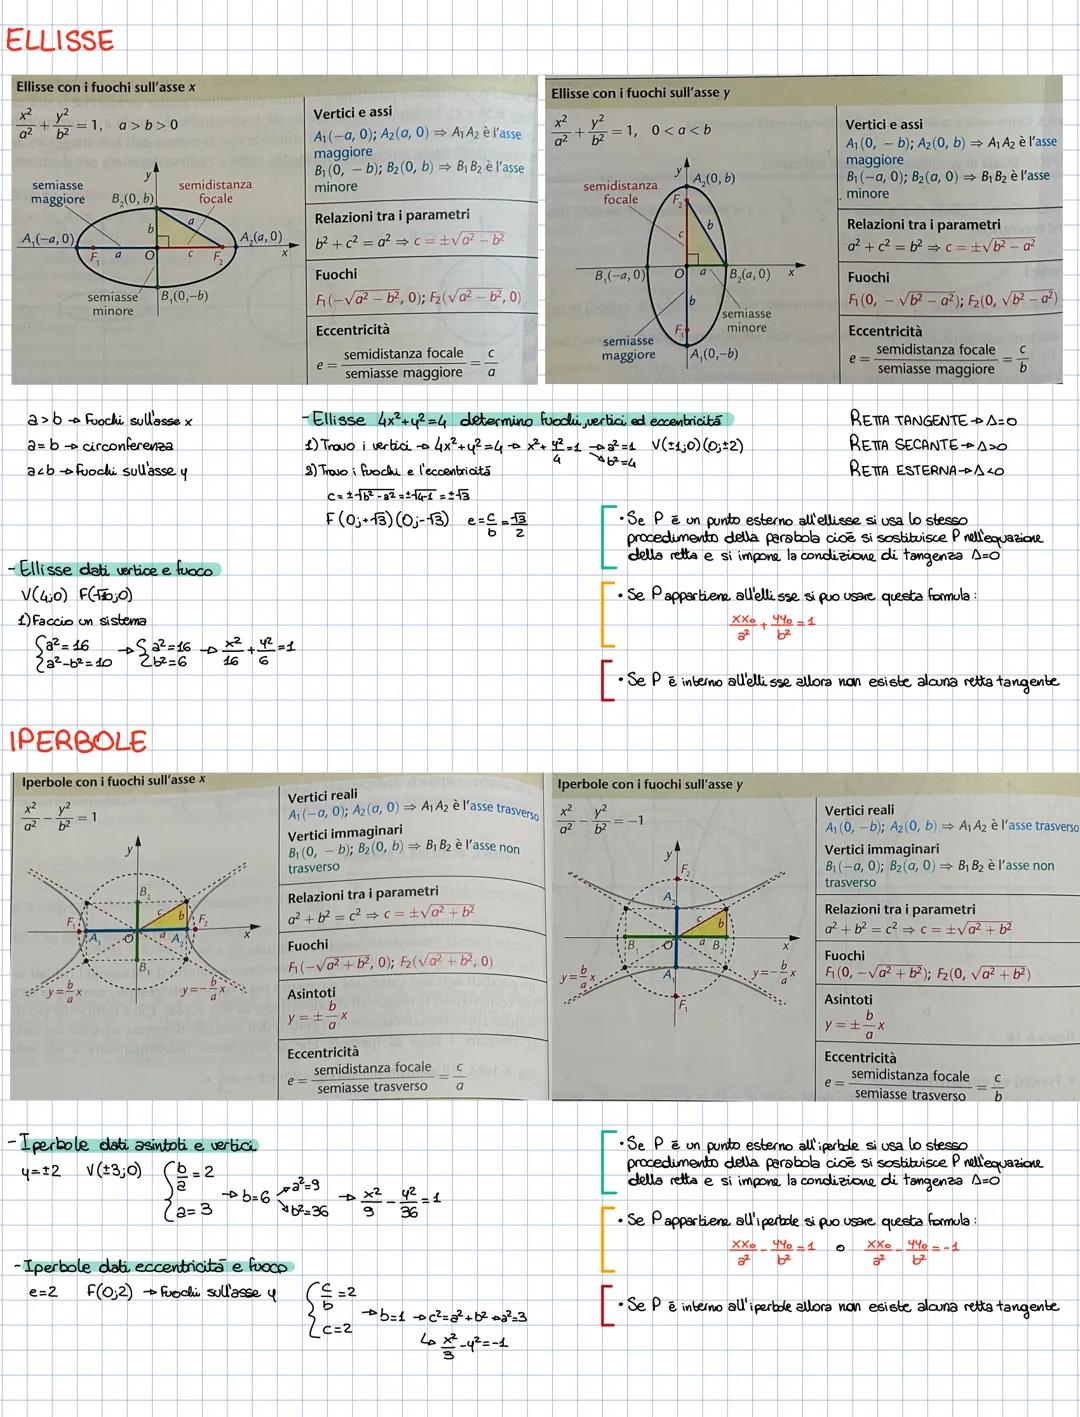 ELLISSE
Ellisse con i fuochi sull'asse x
x²/a² + y²/b² = 1, a > b > 0
semiasse maggiore
B₂(0, b)
y
semidistanza focale
A₁(−a, 0)
F₁
a
O
b
a
c
F₂
A₂(a, 0)
x
semiasse minore
B₁(0,−b)
Vertici e assi
A₁(−a, 0); A₂(a, 0) ⇒ A₁A₂ è l'asse
maggiore
B₁(0, − b); B₂(0, b) ⇒ B₁B₂ è l'asse
minore
Relazioni tra i parametri
b² + c² = a² ⇒ c = ±√a² − b²
Fuochi
F₁(−√a² − b², 0); F₂(√a² − b², 0)
Eccentricità
e = semidistanza focale/semiasse maggiore = c/a
Ellisse con i fuochi sull'asse y
x²/a² + y²/b² = 1, 0 < a < b
semidistanza focale
y
A₂(0, b)
F₂
c
b
B₁(−a, 0)
O
a
B₂(a, 0)
x
b
semiasse minore
F₁
semiasse maggiore
A₁(0,−b)
Vertici e assi
A₁(0, − b); A₂(0, b) ⇒ A₁A₂ è l'asse
maggiore
B₁(−a, 0); B₂(a, 0) ⇒ B₁B₂ è l'asse
minore
Relazioni tra i parametri
a² + c² = b² ⇒ c = ±√b² − a²
Fuochi
F₁(0, − √b² − a²); F₂(0, √b² − a²)
Eccentricità
e = semidistanza focale/semiasse maggiore = c/b
a>b → Fuochi sull'asse x
a=b → circonferenza
a<b → fuochi sull'asse y
-Ellisse 4x²+y²=4 determino fuochi, vertici ed eccentricità
1) Trovo i vertici → 4x²+y²=4 → x²+y²/4=1 → a²=1 b²=4 V(±1;0)(0;±2)
2) Trovo i fuochi e l'eccentricità
c=±√b²-a²=±√4-1=±√3
F(0;+√3)(0;-√3) e=c/b=√3/2
RETTA TANGENTE → Δ=0
RETTA SECANTE → Δ>0
RETTA ESTERNA → Δ<0
-Ellisse dati vertice e fuoco
V(4;0) F(-√10;0)
1) Faccio un sistema
{a²=16 a²-b²=10 → {a²=16 b²=6 → x²/16+y²/6=1
• Se P è un punto esterno all'ellisse si usa lo stesso
procedimento della parabola cioè si sostituisce P nell'equazione
della retta e si impone la condizione di tangenza Δ=0
• Se P appartiene all'ellisse si può usare questa formula:
xx₀/a² + yy₀/b² = 1
• Se P è interno all'ellisse allora non esiste alcuna retta tangente
IPERBOLE
Iperbole con i fuochi sull'asse x
x²/a² − y²/b² = 1
y
B₂
F₁
A₁
O
c
b
a
A₂
F₂
x
B₁
y=b/a x
y=−b/a x
Vertici reali
A₁(−a, 0); A₂(a, 0) ⇒ A₁A₂ è l'asse trasverso
Vertici immaginari
B₁(0, − b); B₂(0, b) ⇒ B₁B₂ è l'asse non
trasverso
Relazioni tra i parametri
a² + b² = c² ⇒ c = ±√a² + b²
Fuochi
F₁(−√a² + b², 0); F₂(√a² + b², 0)
Asintoti
y = ± b/a x
Eccentricità
e = semidistanza focale/semiasse trasverso = c/a
Iperbole con i fuochi sull'asse y
x²/a² − y²/b² = −1
y
F₂
A₂
c
b
B₁
O
a
B₂
x
A₁
F₁
y=b/a x
y=−b/a x
Vertici reali
A₁(0, −b); A₂(0, b) ⇒ A₁A₂ è l'asse trasverso
Vertici immaginari
B₁(−a, 0); B₂(a, 0) ⇒ B₁B₂ è l'asse non
trasverso
Relazioni tra i parametri
a² + b² = c² ⇒ c = ±√a² + b²
Fuochi
F₁(0, −√a² + b²); F₂(0, √a² + b²)
Asintoti
y = ± b/a x
Eccentricità
e = semidistanza focale/semiasse trasverso = c/b
-Iperbole dati asintoti e vertici
y=±2 V(±3;0) {b/a=2 a=3 → b=6 → a²=9 b²=36 → x²/9 - y²/36 = 1
-Iperbole dati eccentricità e fuoco
e=2 F(0;2) → Fuochi sull'asse y {c/b=2 c=2 → b=1 → c²=a²+b² → a²=3
↳ x²/3 - y² = -1
• Se P è un punto esterno all'iperbole si usa lo stesso
procedimento della parabola cioè si sostituisce P nell'equazione
della retta e si impone la condizione di tangenza Δ=0
• Se P appartiene all'iperbole si può usare questa formula:
xx₀/a² - yy₀/b² = 1 o xx₀/a² - yy₀/b² = -1
• Se P è interno all'iperbole allora non esiste alcuna retta tangente